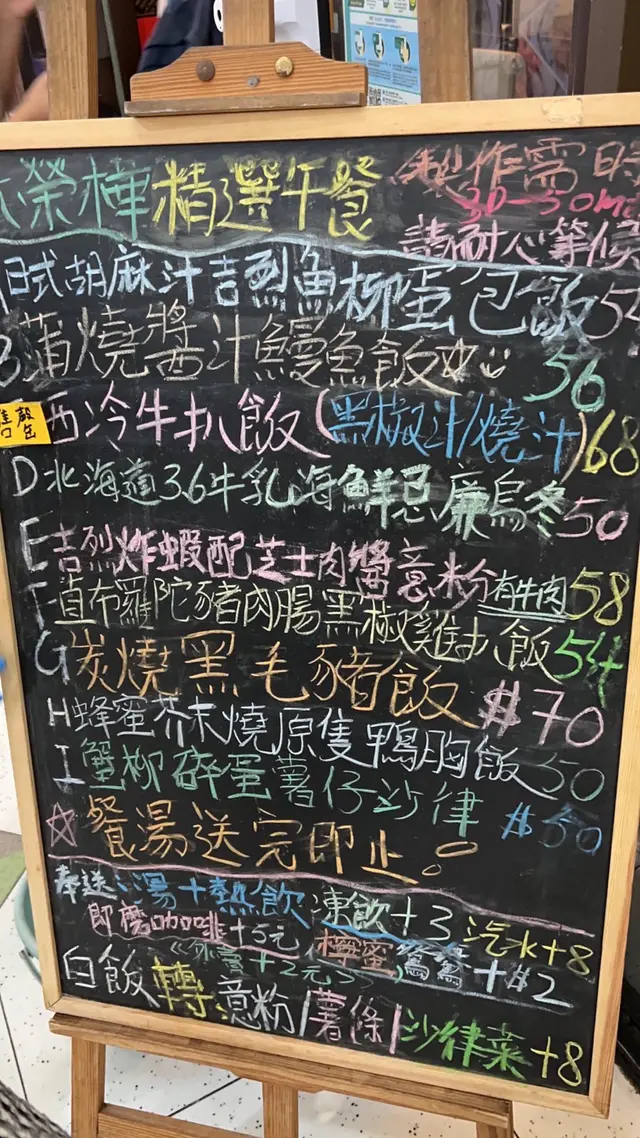 榮樺精選午餐
製作需時
30-50M
請耐心等候
日式胡麻汁吉烈魚柳蛋包飯54
B蒲燒醬汁鰻魚飯☆ 56
售罄
西冷牛扒飯(黑椒汁/燒汁)68
D北海道3.6牛乳海鮮忌廉烏冬50
E吉烈炸蝦配芝士肉醬意粉 有牛肉58
F直布羅陀豬肉腸黑椒雞扒飯54
G炭燒黑毛豬飯$70
H蜂蜜芥末燒原隻鴨胸飯50
I蟹柳碎蛋薯仔沙律 $50
☆餐湯送完即止。
奉送湯+熱飲 凍飲+3 汽水+8
即磨咖啡+5元 檸蜜 鴛鴦+$2
白飯轉意粉|薯條|沙律菜+8